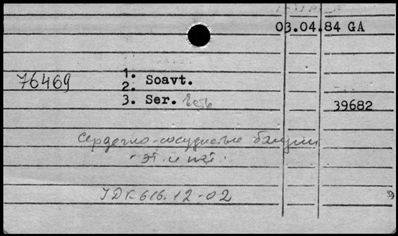 03.04.84 GA
76469
1. Soavt.
2.
3. Ser.
39682
Сердечно-сосудистые
УДК 616.12-02